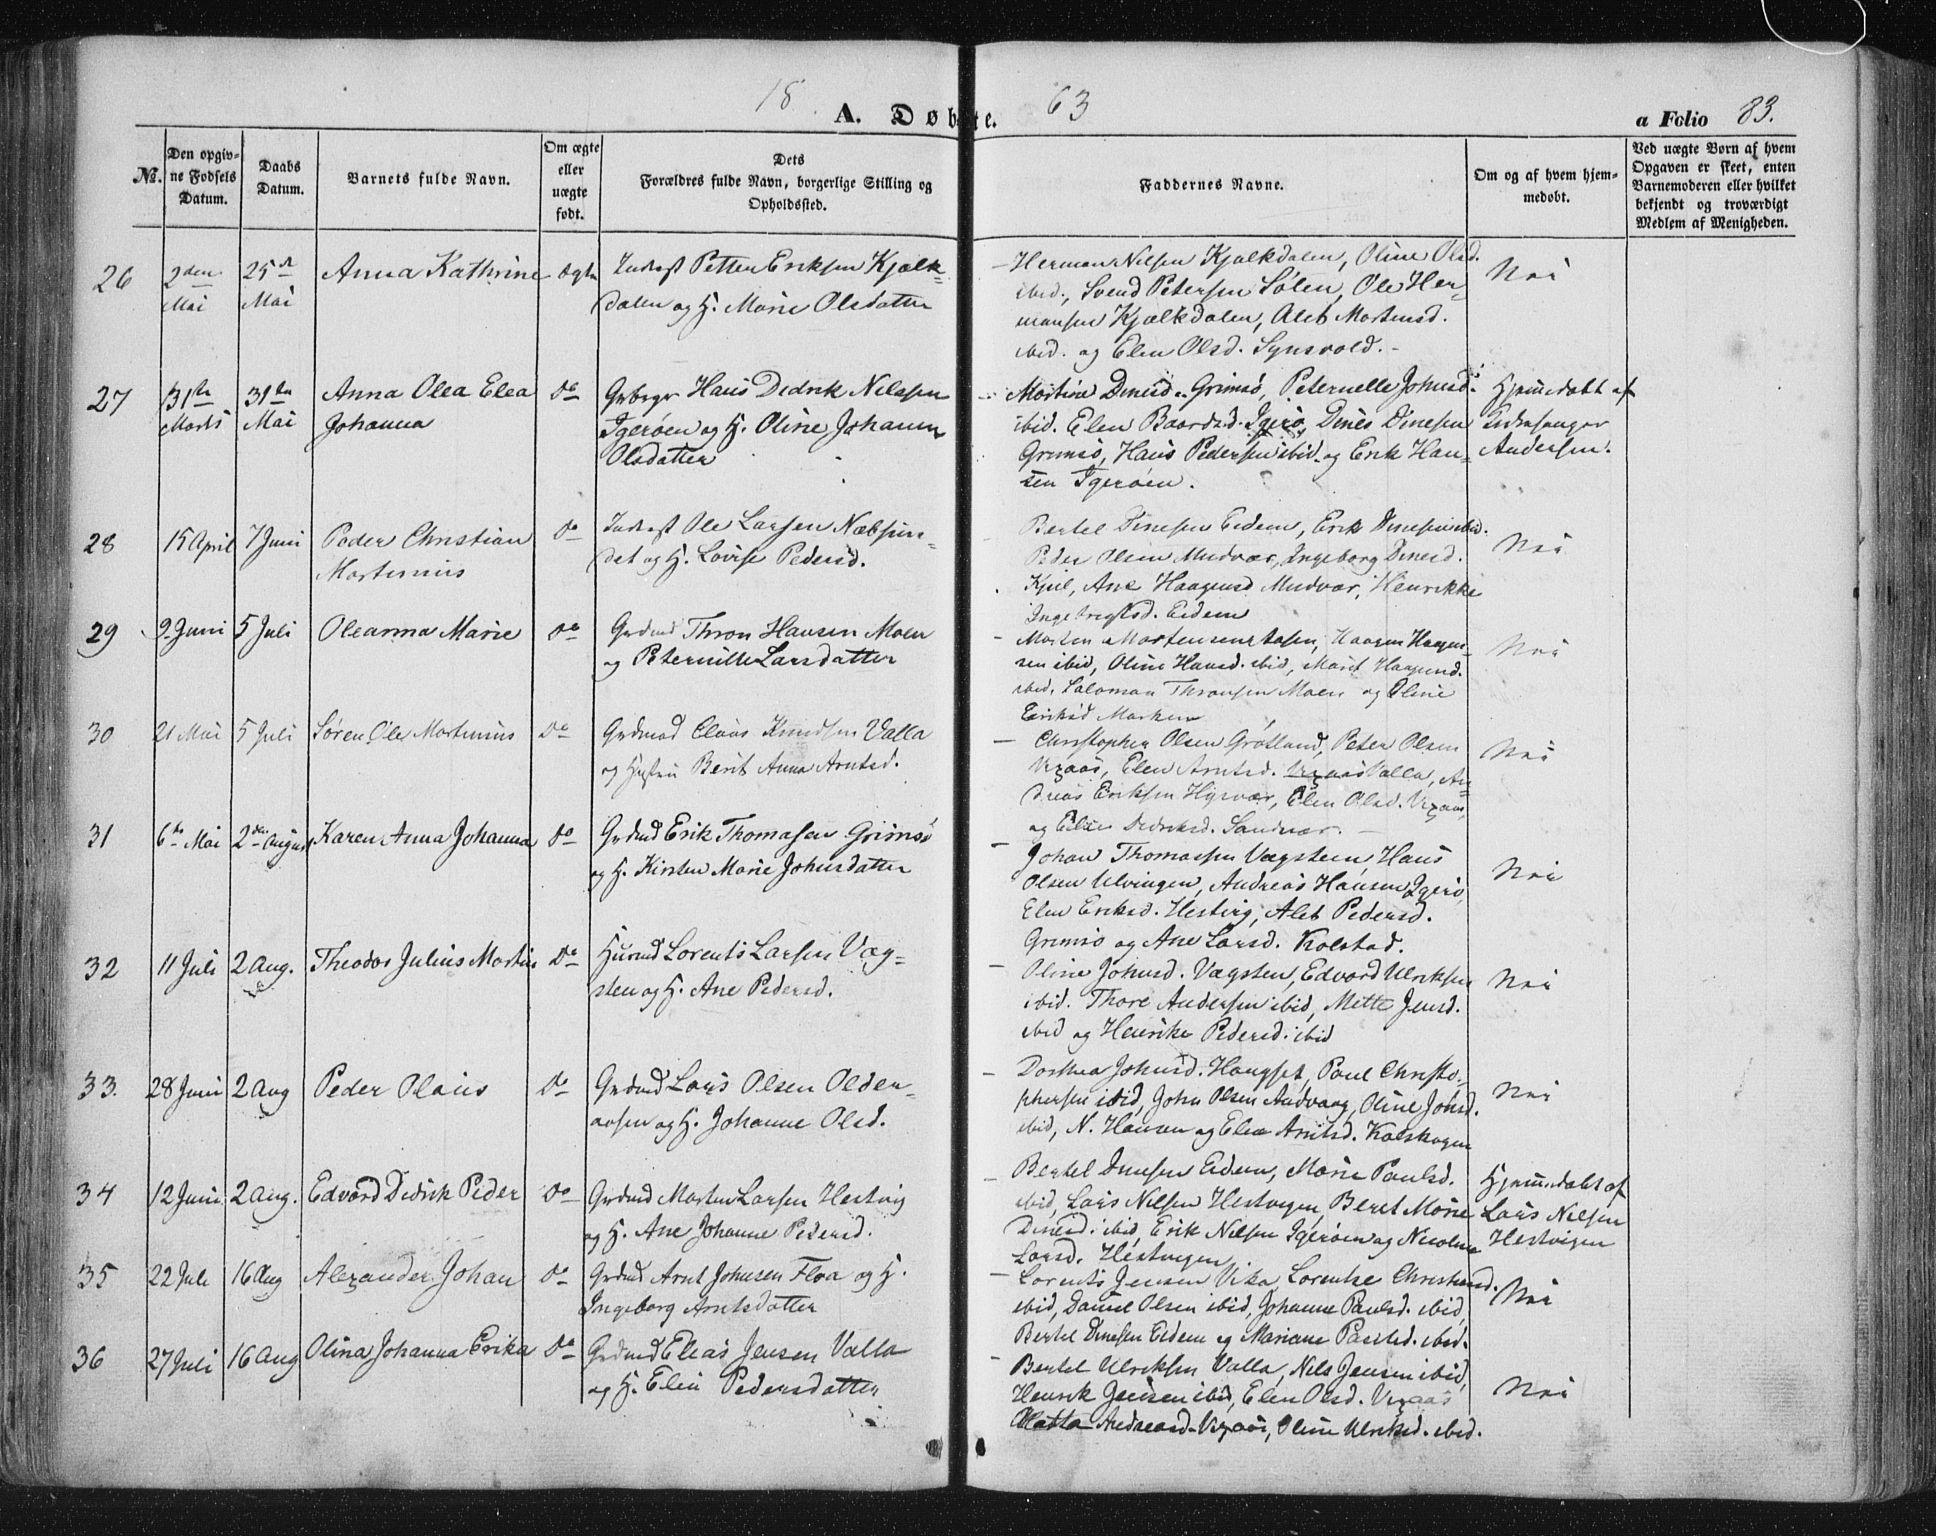 18 63
A. Døbte.
a Folio 83.
No.
Den opgiv-
ne Fødsels
Datum.
Daabs
Datum.
Barnets fulde Navn.
Om ægte
eller
uægte
født.
Dets
Forældres fulde Navn, borgerlige Stilling og
Opholdssted.
Faddernes Navne.
Om og af hvem hjem-
medøbt.
Ved uægte Børn af hvem
Opgaven er skeet, enten
Barnemoderen eller hvilket
bekjendt og troværdigt
Medlem af Menigheden.
26
2den
Mai
25de
Mai
Anna Kathrine
ægte
Inderst Petter Eriksen Kjælk-
dalen og H. Marie Olsdatter
Herman Nilsen Kjælkdalen, Oline Olsd.
ibid., Svend Petersen Sølen, Ole Her-
mansen Kjælkdalen, Alet Mortensd.
ibid. og Elen Olsd. Synsvold.
Nei
27
31te
Marts
31te
Mai
Anna Olea Elea
Johanna
Do
Hans Didrik Nilssen
Igerøen og H. Oline Johanne
Olsdatter
Martine Dinesd. Grimsø, Peternelle Johnsd.
ibid. Elen Baardsd. Igerø, Dines Dinesen
Grimsø, Hans Pedersen ibid. og Erik Han-
sen Igerøen.
Hjemmedøbt af
Kirkesanger
Andersen.
28
15 April
7 Juni
Peder Christian
Martinius
Do
Inderst Ole Larsen
og H. Lovise Pedersd.
Bertel Dinesen Eidem, Erik Dinesen ibid.
Peder Olsen Mudvær, Ingeborg Dinesd.
Ane Haagensd Mudvær, Henrikke
Ingebrigtsd. Eidem
Nei
29
9 Juni
5 Juli
Oleanna Marie
Do
Grdmd Thron Hansen Moen
og Peternille Larsdatter
Morten Mortensen Haagen Haagen-
sen ibid, Oline Hansd. ibid, Marit Haagensd.
ibid. Salomon Thronsen Moen og Oline
Eriksd Marken
Nei
30
21 Mai
5 Juli
Søren Ole Martinius
Do
Grdmd Claus Knudsen Valla
og Hustru Berit Anna Arntsd.
Christophen Olsen Grøtland, Peter Olsen
Vexaas, Elen Arntsd. Vexaas Valla, An-
dreas Eriksen Hysvær, Elen Olsd. Vexaas,
og Elise Didriksd. Sandvær.
Nei
31
6te Mai
2den August
Karen Anna Johanna
Do
Grdmd Erik Thomasen Grimsø
og H. Kirsten Marie Johnsdatter
Johan Thomassen Vægsteen Hans
Olsen Ulvingen, Andreas Hansen Igerø,
Elen Eriksd. Hestvig, Alet Pedersd.
Grimsø og Ane Larsd. Kolstad.
Nei
32
11 Juli
2 Aug.
Theodor Julius Martin
Do
Husmd Lorents Larsen Væg-
sten og H. Ane Pedersd.
Oline Johnsd. Vægsten, Edvard Ulriksen
ibid. Thore Andersen ibid, Mette Jensd.
ibid og Henrike Pedersd. ibid
Nei
33.
28 Juni
2 Aug
Peder Olaus
Do
Grdmd Lars Olsen Older-
aasen og H. Johanne Olsd.
Dorthea Johnsd. Paul Christo-
phersen ibid, John Olsen Andvaag, Oline Johnsd.
ibid, N. Hansen og Elen Arntsd. Kolskogen
Nei
34
12 Juni
2 Aug.
Edvard Didrik Peder
Do
Grdmd Morten Larsen Hestvig
og H. Ane Johanne Pedersd.
Bertel Dinesen Eidem, Marie Paulsd.
ibid, Lars Nilsen Hestvigen, Beret Marie
Dinesd. ibid, Erik Nilsen Igerøen og Nicoline
Larsd. Hestvigen
Hjemmedøbt af
Lars Nilsen
Hestvigen
35
22 Juli
16 Aug
Alexander Johan
Do
Grdmd Arnt Johnsen Floa og H.
Ingeborg Arntsdatter
Lorents Jensen Vika, Lorentse Christensd.
ibid, Daniel Olsen ibid, Johanne Paulsd. ibid,
Bertel Dinesen Eidem og Mariane Paulsd. ibid.
Nei
36
27 Juli
16 Aug
Olina Johanna Erika
Do
Grdmd Elias Jensen Valla
og H. Elen Pedersdatter
Bertel Ulriksen Valla, Nils Jensen ibid,
Henrik Jensen ibid, Elen Olsd. Vexaas
Andreasd. Vexaas, Oline Ulriksd. ibid.
Nei